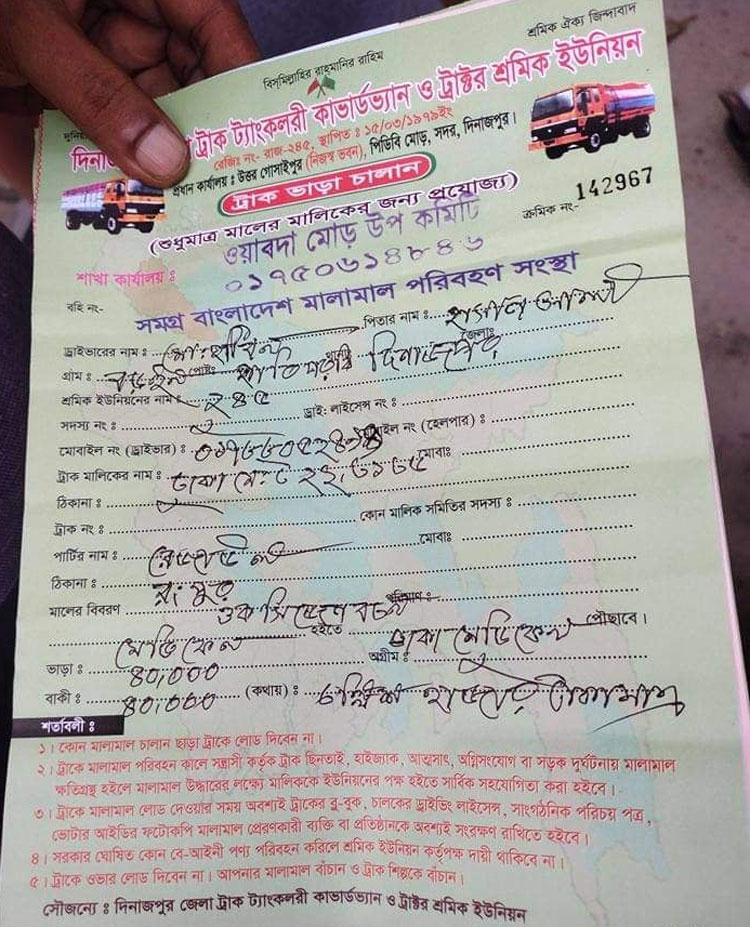 বিস্‌মিল্লাহির রাহ্‌মানির রাহিম
শ্রমিক ঐক্য জিন্দাবাদ
ট্রাক ট্যাংকলরী কাভার্ডভ্যান ও ট্রাক্টর শ্রমিক ইউনিয়ন
রেজিঃ নং- রাজ-২৪৫, স্থাপিত : ১৫/০৩/১৯৭৯ইং
প্রধান কার্যালয় : উত্তর গোসাইপুর (নিজস্ব ভবন), পিডিবি মোড়, সদর, দিনাজপুর।
ট্রাক ভাড়া চালান
(শুধুমাত্র মালের মালিকের জন্য প্রযোজ্য)
ক্রমিক নং- 142967
ওয়াবদা মোড় উপ কমিটি
শাখা কার্যালয় : ০১৭৫০৬১৪৮৪৬
বহি নং-
সমগ্র বাংলাদেশ মালামাল পরিবহণ সংস্থা
ড্রাইভারের নাম : মোঃ পিতার নাম :
গ্রাম : পোষ্ট: থানা জেলা: দিনাজপুর
শ্রমিক ইউনিয়নের নাম : ২৪৫
সদস্য নং : ড্রাই: লাইসেন্স নং :
মোবাইল নং (ড্রাইভার) : মোবাইল নং (হেলপার) :
ট্রাক মালিকের নাম : ঢাকা মেঃ ট ২২,৬১৮৫ মোবাঃ
ঠিকানা :
ট্রাক নং : কোন মালিক সমিতির সদস্য :
পার্টির নাম : মোবাঃ
ঠিকানা : রংপুর
মালের বিবরণ পরিমাণ :
মেডিকেল হইতে ঢাকা মেডিকেল পৌছাবে।
ভাড়া : ৪০,০০০ অগ্রীম :
বাকী : ৪০,০০০ (কথায়) : চল্লিশ হাজার টাকা মাত্র
শর্তাবলী :
১। কোন মালামাল চালান ছাড়া ট্রাকে লোড দিবেন না।
২। ট্রাকে মালামাল পরিবহন কালে সন্ত্রাসী কর্তৃক ট্রাক ছিনতাই, হাইজ্যাক, আত্মসাৎ, অগ্নিসংযোগ বা সড়ক দুর্ঘটনায় মালামাল
ক্ষতিগ্রস্থ হইলে মালামাল উদ্ধারের লক্ষ্যে মালিককে ইউনিয়নের পক্ষ হইতে সার্বিক সহযোগিতা করা হইবে।
৩। ট্রাকে মালামাল লোড দেওয়ার সময় অবশ্যই ট্রাকের ব্লু-বুক, চালকের ড্রাইভিং লাইসেন্স, সাংগঠনিক পরিচয় পত্র,
ভোটার আইডির ফটোকপি মালামাল প্রেরণকারী ব্যক্তি বা প্রতিষ্ঠানকে অবশ্যই সংরক্ষণ রাখিতে হইবে।
৪। সরকার ঘোষিত কোন বে-আইনী পণ্য পরিবহন করিলে শ্রমিক ইউনিয়ন কর্তৃপক্ষ দায়ী থাকিবে না।
৫। ট্রাকে ওভার লোড দিবেন না। আপনার মালামাল বাঁচান ও ট্রাক শিল্পকে বাঁচান।
সৌজন্যে : দিনাজপুর জেলা ট্রাক ট্যাংকলরী কাভার্ডভ্যান ও ট্রাক্টর শ্রমিক ইউনিয়ন